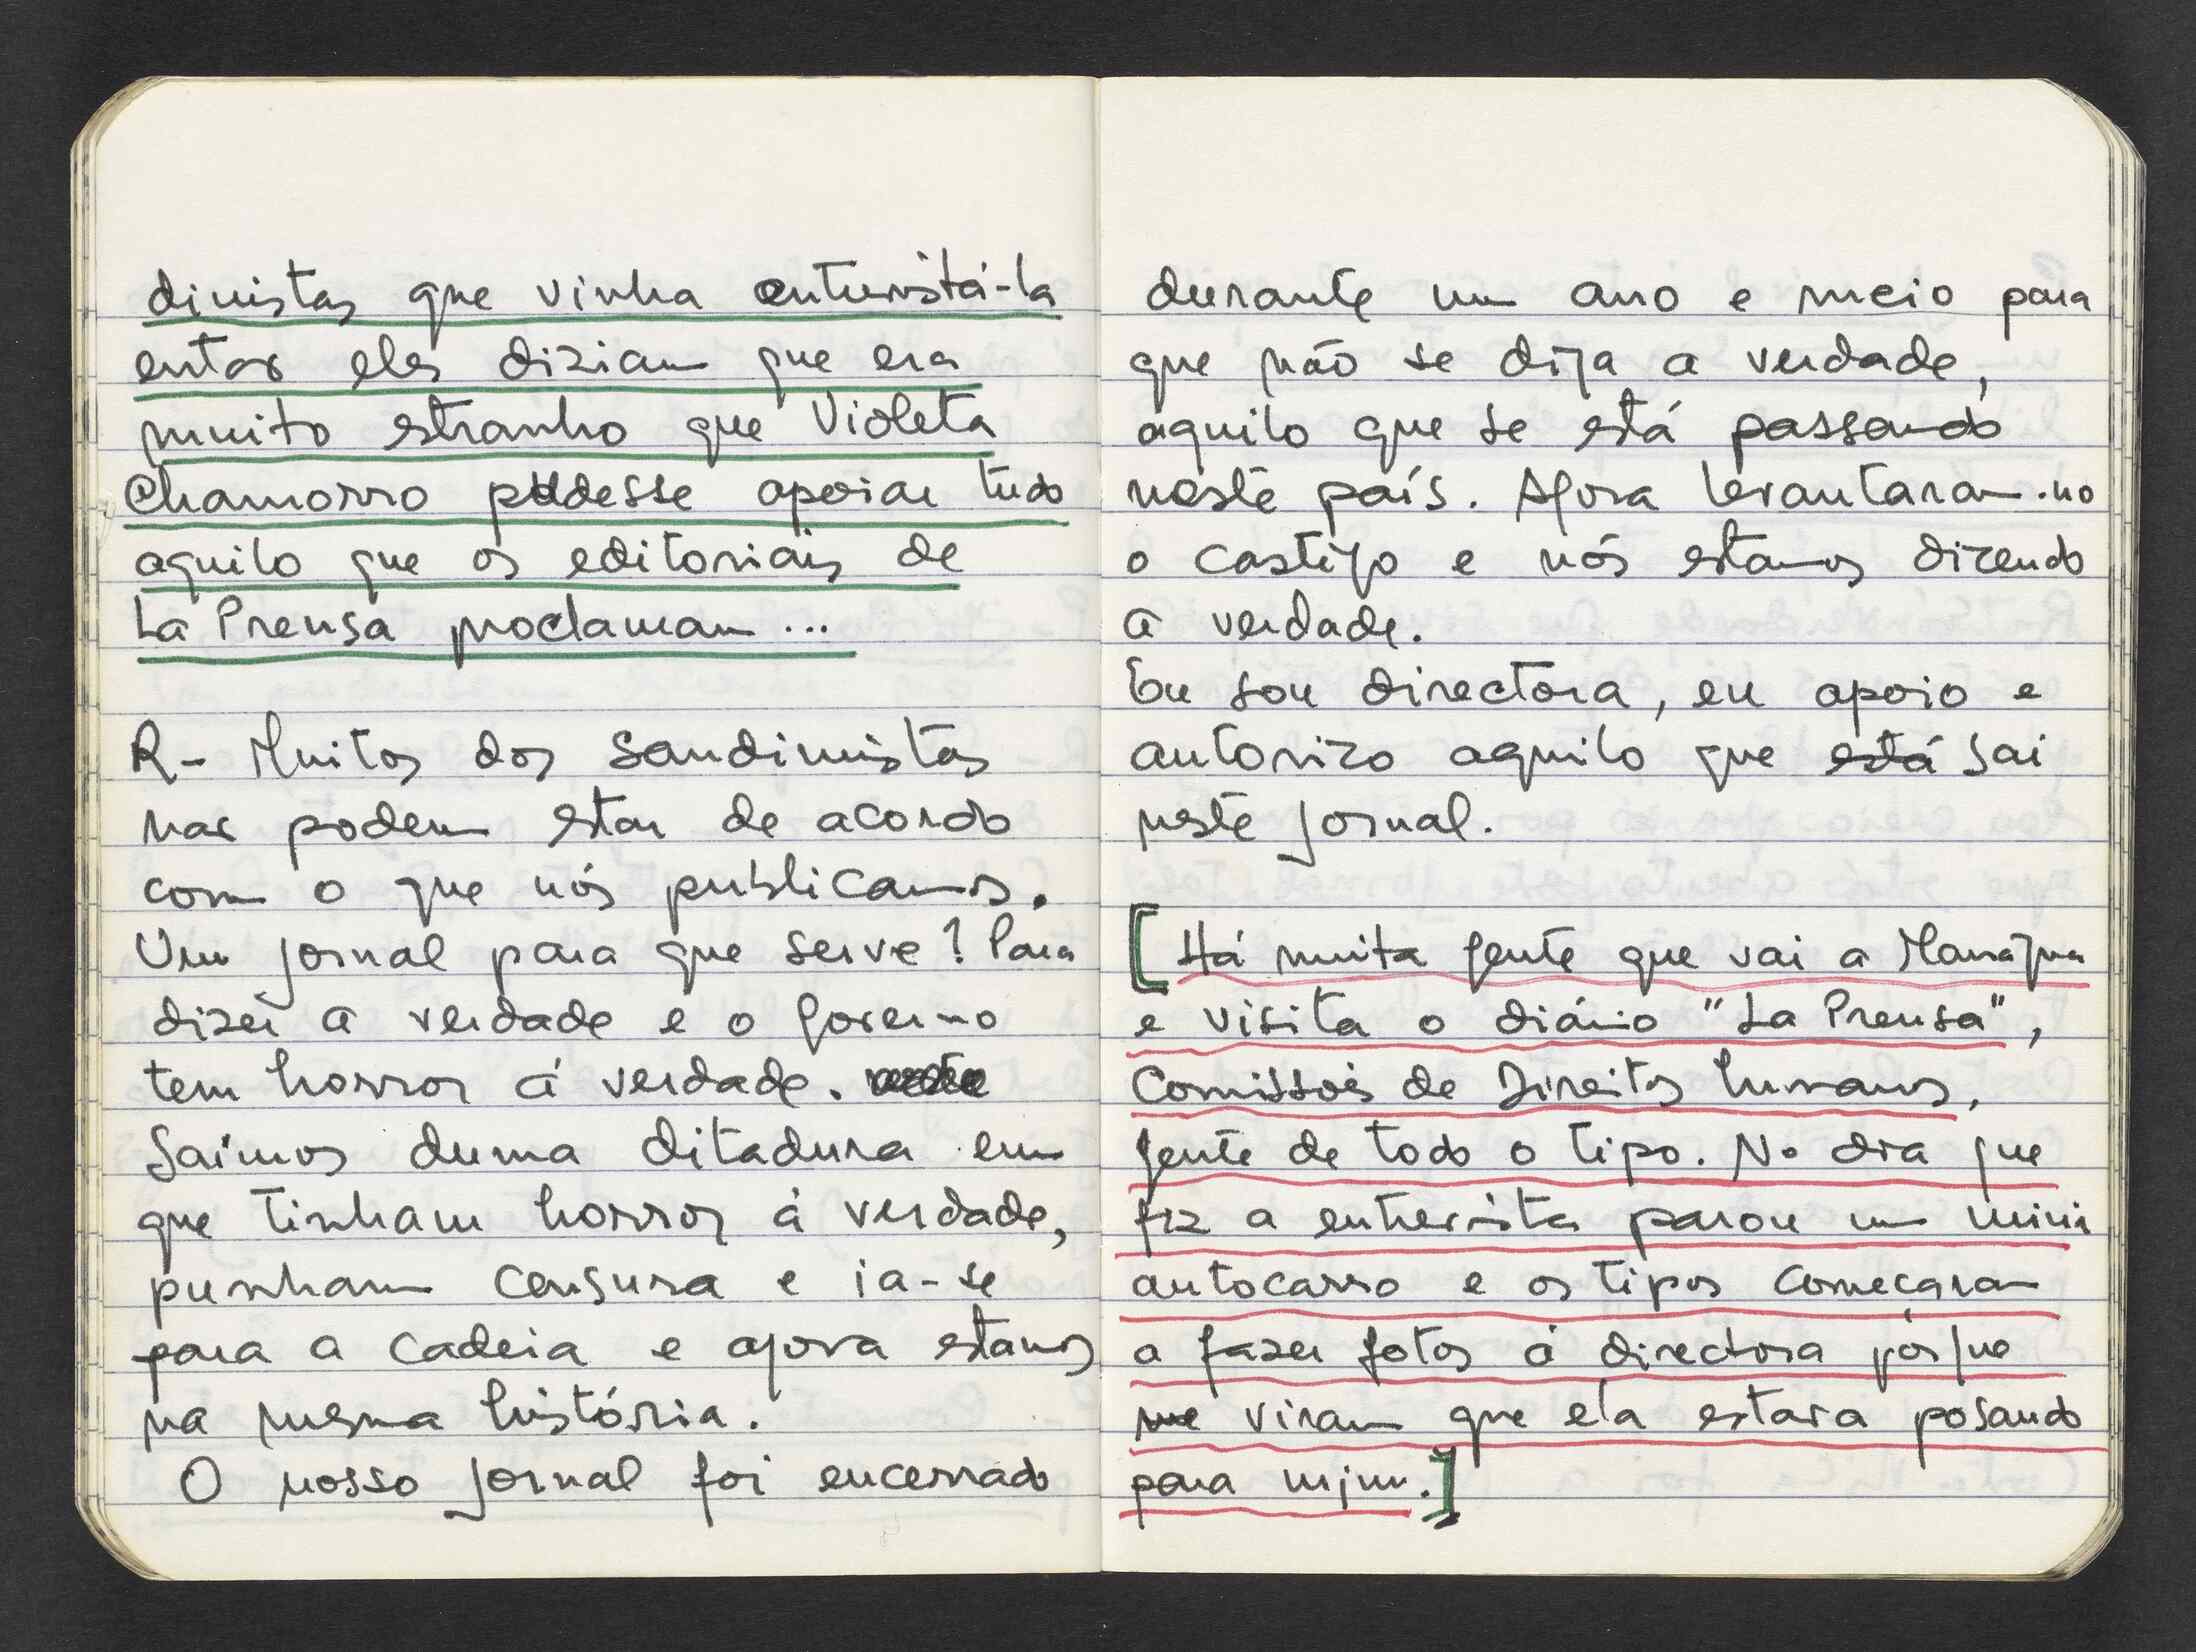 dinistas que vinha entrevistá-la
então eles diziam que era
muito estranho que Violeta
Chamorro pudesse apoiar tudo
aquilo que os editoriais de
La Prensa proclamam...
R- Muitos dos Sandinistas
não podem estar de acordo
com o que nós publicamos.
Um jornal para que serve? Para
dizer a verdade e o governo
tem horror á verdade.
Saímos duma ditadura em
que tinham horror á verdade,
punham censura e ia-se
para a cadeia e agora estamos
na mesma história.
O nosso jornal foi encerrado
durante um ano e meio para
que não se diga a verdade,
aquilo que se está passando
neste país. Agora levantaram-no
o castigo e nós estamos dizendo
a verdade.
Eu sou directora, eu apoio e
autorizo aquilo que está sai
neste jornal.
[Há muita gente que vai a Manágua
e visita o diário "La Prensa",
Comissões de Direitos humanos,
gente de todo o tipo. No dia que
fiz a entrevista parou um mini
autocarro e os tipos começaram
a fazer fotos á directora porque
me viram que ela estava posando
para mim.]